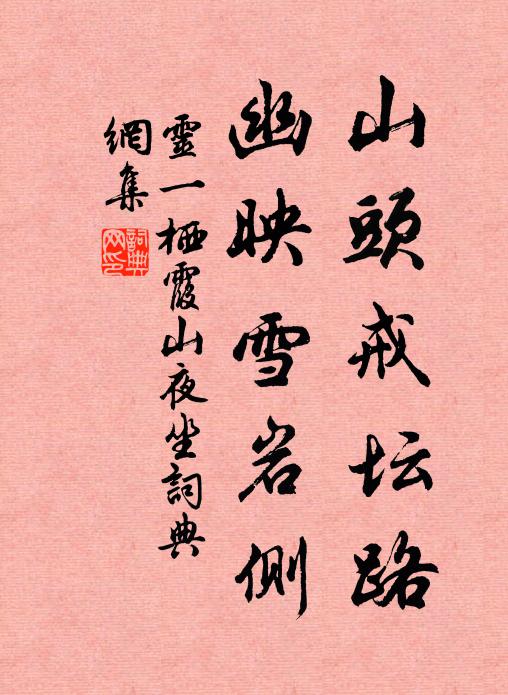 山頭戒坛路
幽映雪岩侧
靈一栖霞山夜坐詞典
網集
詞典
网印